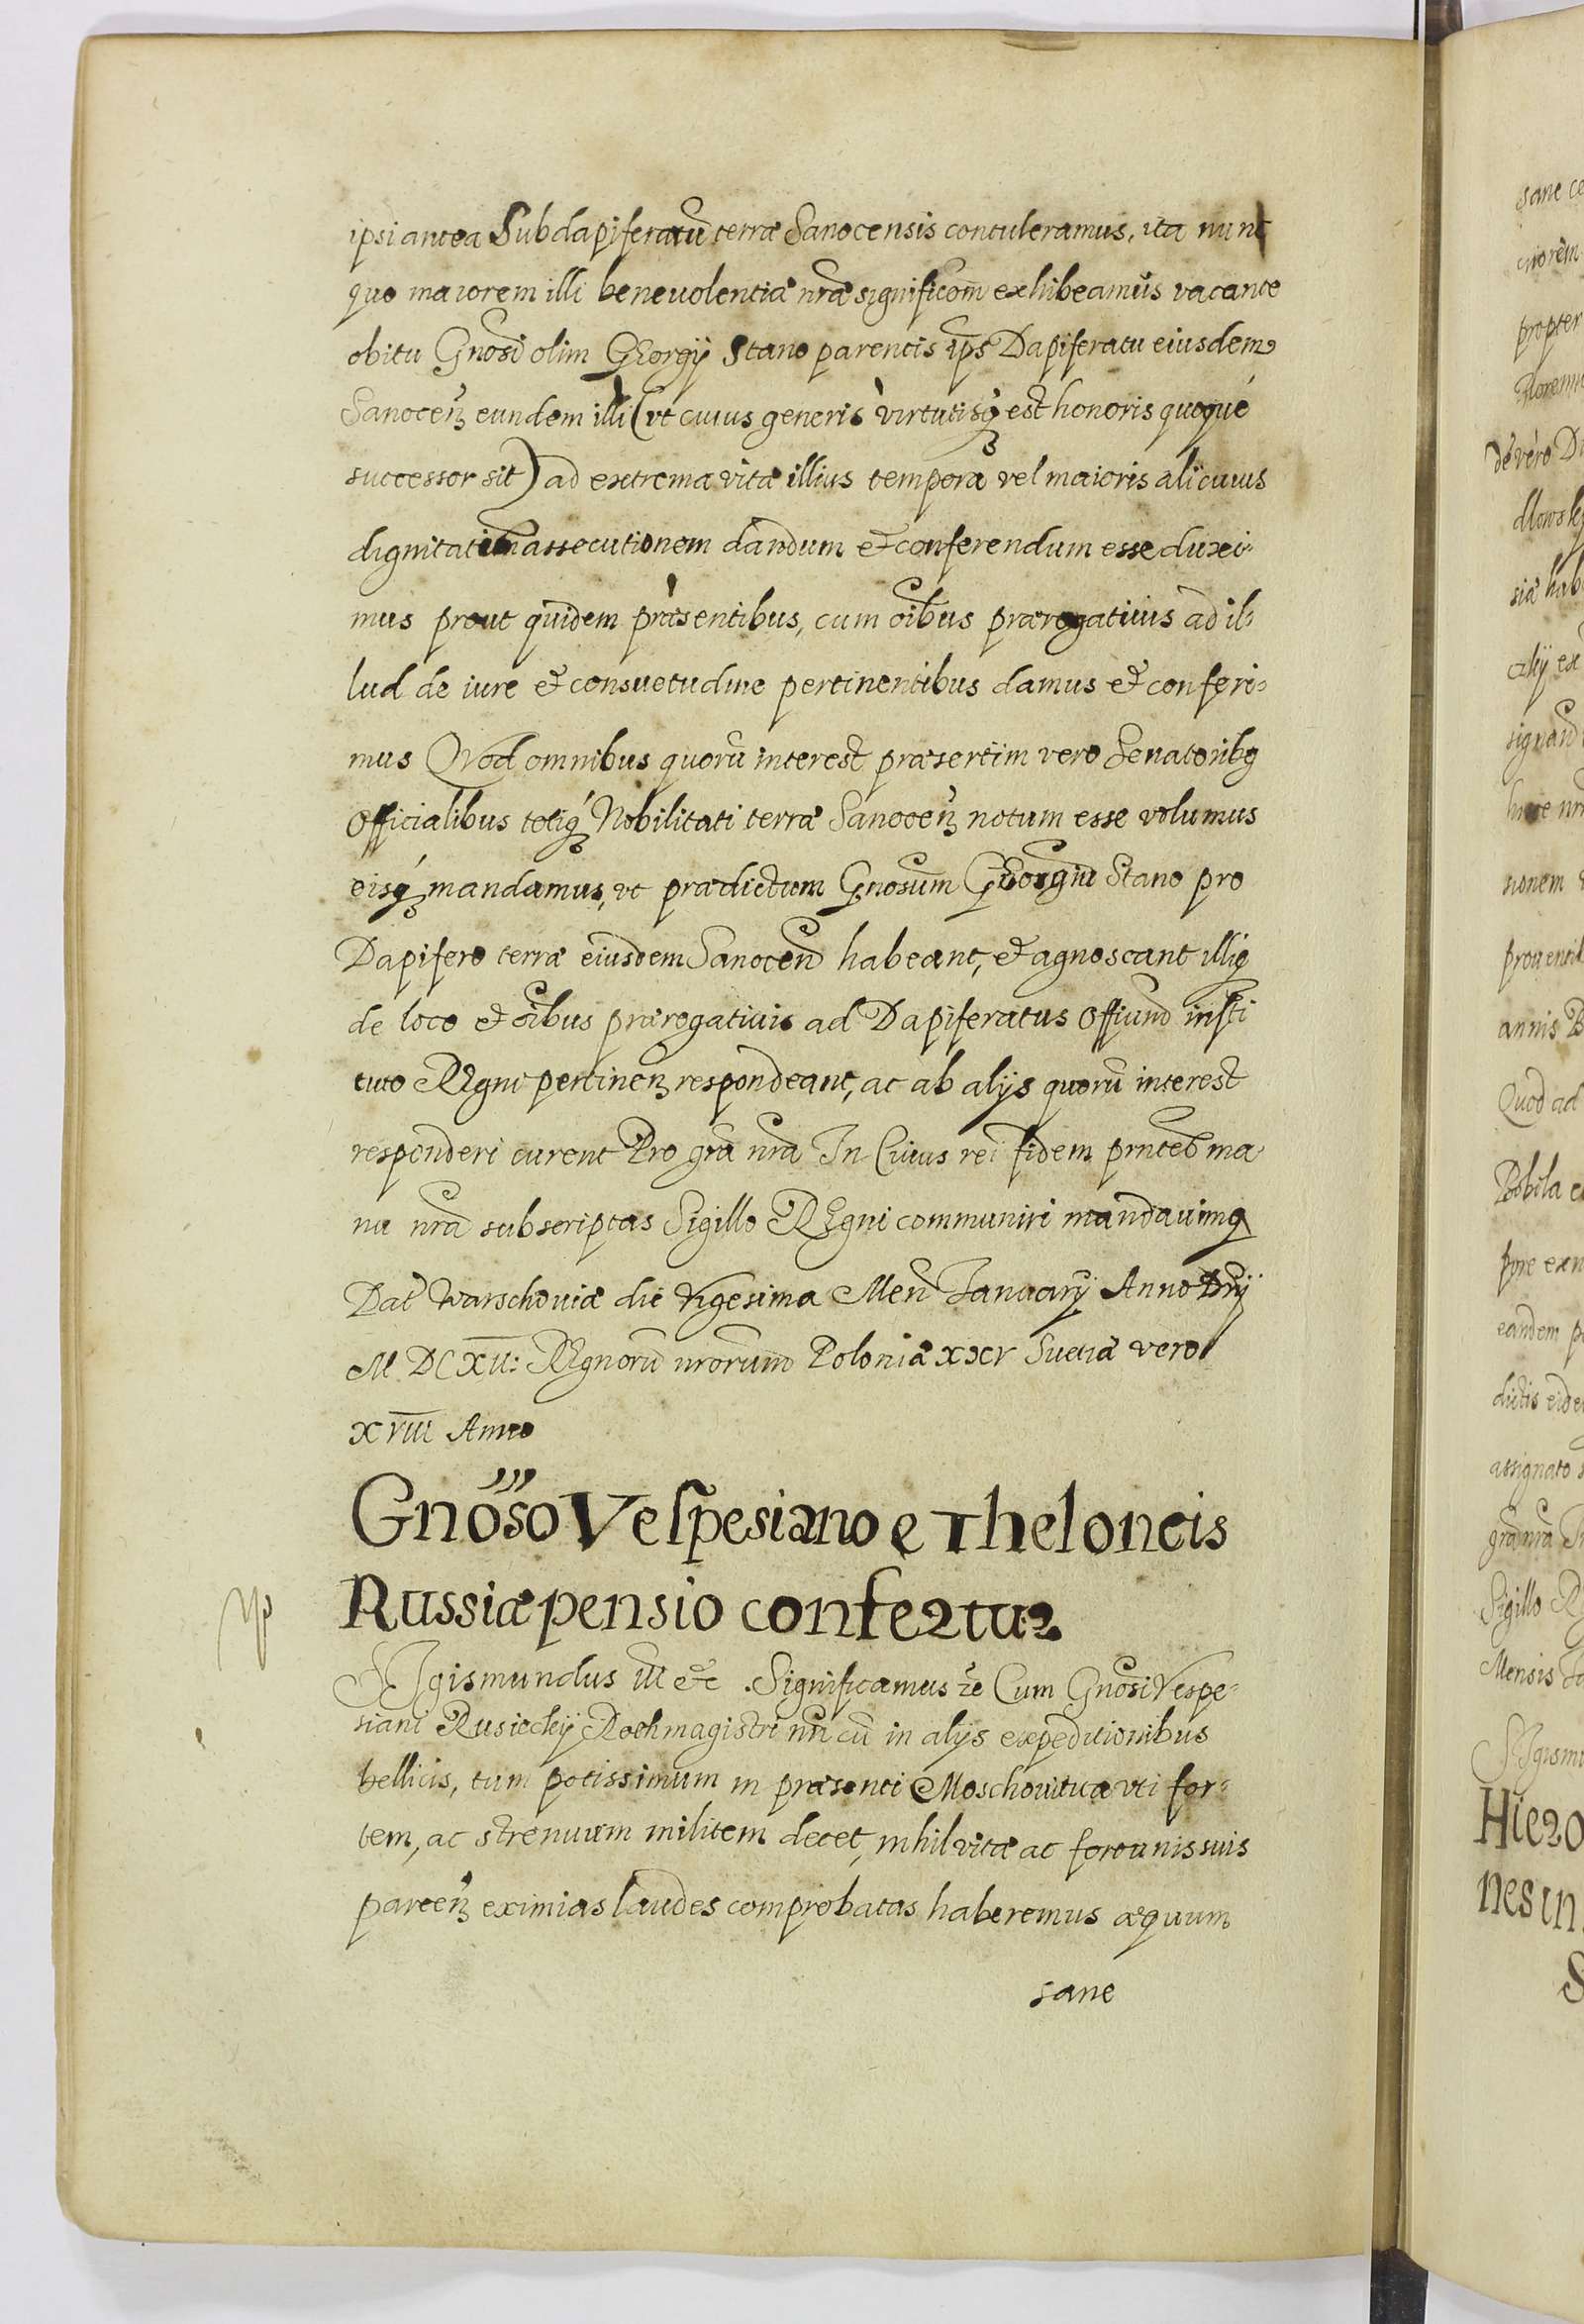 ipsi antea Subdapiferatũ terræ Sanocensis contuleramus, ita nunc
quo maiorem illi beneuolentiæ nr̃æ significom̃ exhibeamus vacante
obitu Gnosi olim GEorgÿ Stano parentis ip̃s Dapiferatu eiusdem
Sanoceñ eundem illi (vt cuius generis virtutisq́ est honoris quoque
successor sit) ad extrema vitæ illius tempora vel maioris alicuius
dignitatis assecutionem dandum et conferendum esse duxi-
mus prout quidem præsentibus, cum oĩbus prærogatiuis ad il-
lud de iure et consuetudine pertinentibus damus et conferi-
mus Qvod omnibus quorũ interest præsertim vero Senatoribꝰ
Officialibus totiq́ Nobilitati terræ Sanoceñ notum esse volumus
eisq́ mandamus, vt prædictum Gnosum GEorgiũ Stano pro
Dapifero terræ eiusdem Sanoceñ habeant, et agnoscant illiq
de loco et oĩbus prærogatiuis ad Dapiferatus Offiũ insti
tuto REgni pertineñ respondeant, ac ab alijs quorũ interest
responderi curent Pro grã nrã In Cuius rei fidem pñtes ma
nu nrã subscriptas Sigillo REgni communiri mandauimꝰ
Dat̃ Warschouiæ die Vigesima Meñ Januarÿ Anno Dñj
M DC XII: REgnorũ nrorum Poloniæ XXV Suetiæ vero
XVIII Anno
Gnõso Vespesiano e Theloneis
Russiæ pensio confertur
SIgismundus III etc. Significamus ze Cum Gnosi Vespe-
siani Rusieckÿ Rothmagistri nri cũ in alijs expeditionibus
bellicis, tum potissimum in præsenti Moschouitica vti for-
tem, ac strenuum militem decet, nihil vitæ ac fortunis suis
parceñ eximias laudes comprobatas haberemus æquum
sane